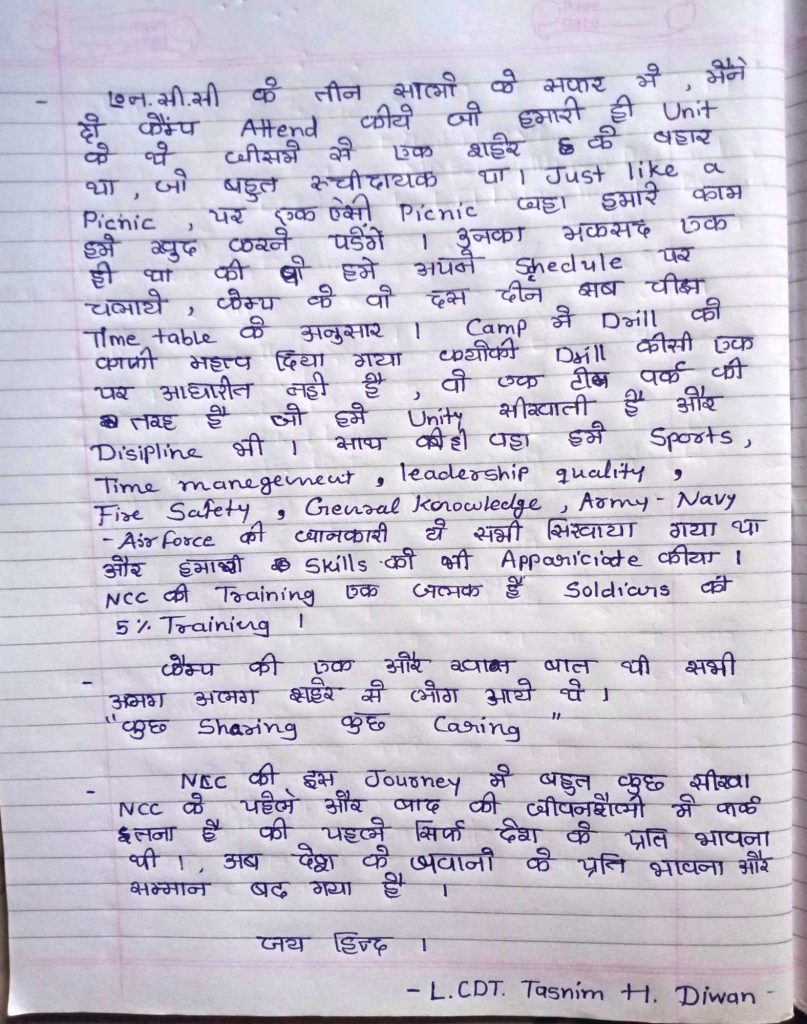 - एन.सी.सी के तीन सालो के सफार मे , मैने
दो कैम्प Attend कीये जो हमारी ही Unit
के थे जीसमे से एक शहेर के बहार
था , जो बहुत रूचीदायक था । Just like a
Picnic , पर एक ऐसी Picnic जहा हमारे काम
हमे खुद करने पडेंगे । उनका मकसद एक
ही था की वो हमे अपने Shedule पर
चलाये , कैम्प के वो दस दीन सब चीझ
Time table के अनुसार । Camp मे Drill को
काफी महत्व दिया गया क्योकी Drill कीसी एक
पर आधारीत नही है , वो एक टीम वर्क की
तरह है जो हमे Unity सीखाती है और
Disipline भी । साथ ही वहा हमे Sports ,
Time manegement , leadership quality ,
Fire Safety , General Knowledge , Army - Navy
- Airforce की जानकारी ये सभी सिखाया गया था
और हमारी Skills को भी Appariciate कीया ।
NCC की Training एक जलक है Soldiars की
5% Training ।
- कैम्प की एक और खास बात थी सभी
अलग अलग शहेर से लोग आये थे ।
"कुछ Sharing कुछ Caring "
- NCC की इस Journey मे बहुत कुछ सीखा
NCC के पहेले और बाद की जीवनशैली मे फर्क
इतना है की पहले सिर्फ देश के प्रति भावना
थी । , अब देश के जवानो के प्रति भावना और
सम्मान बढ गया है ।
जय हिन्द ।
- L.CDT. Tasnim H. Diwan -